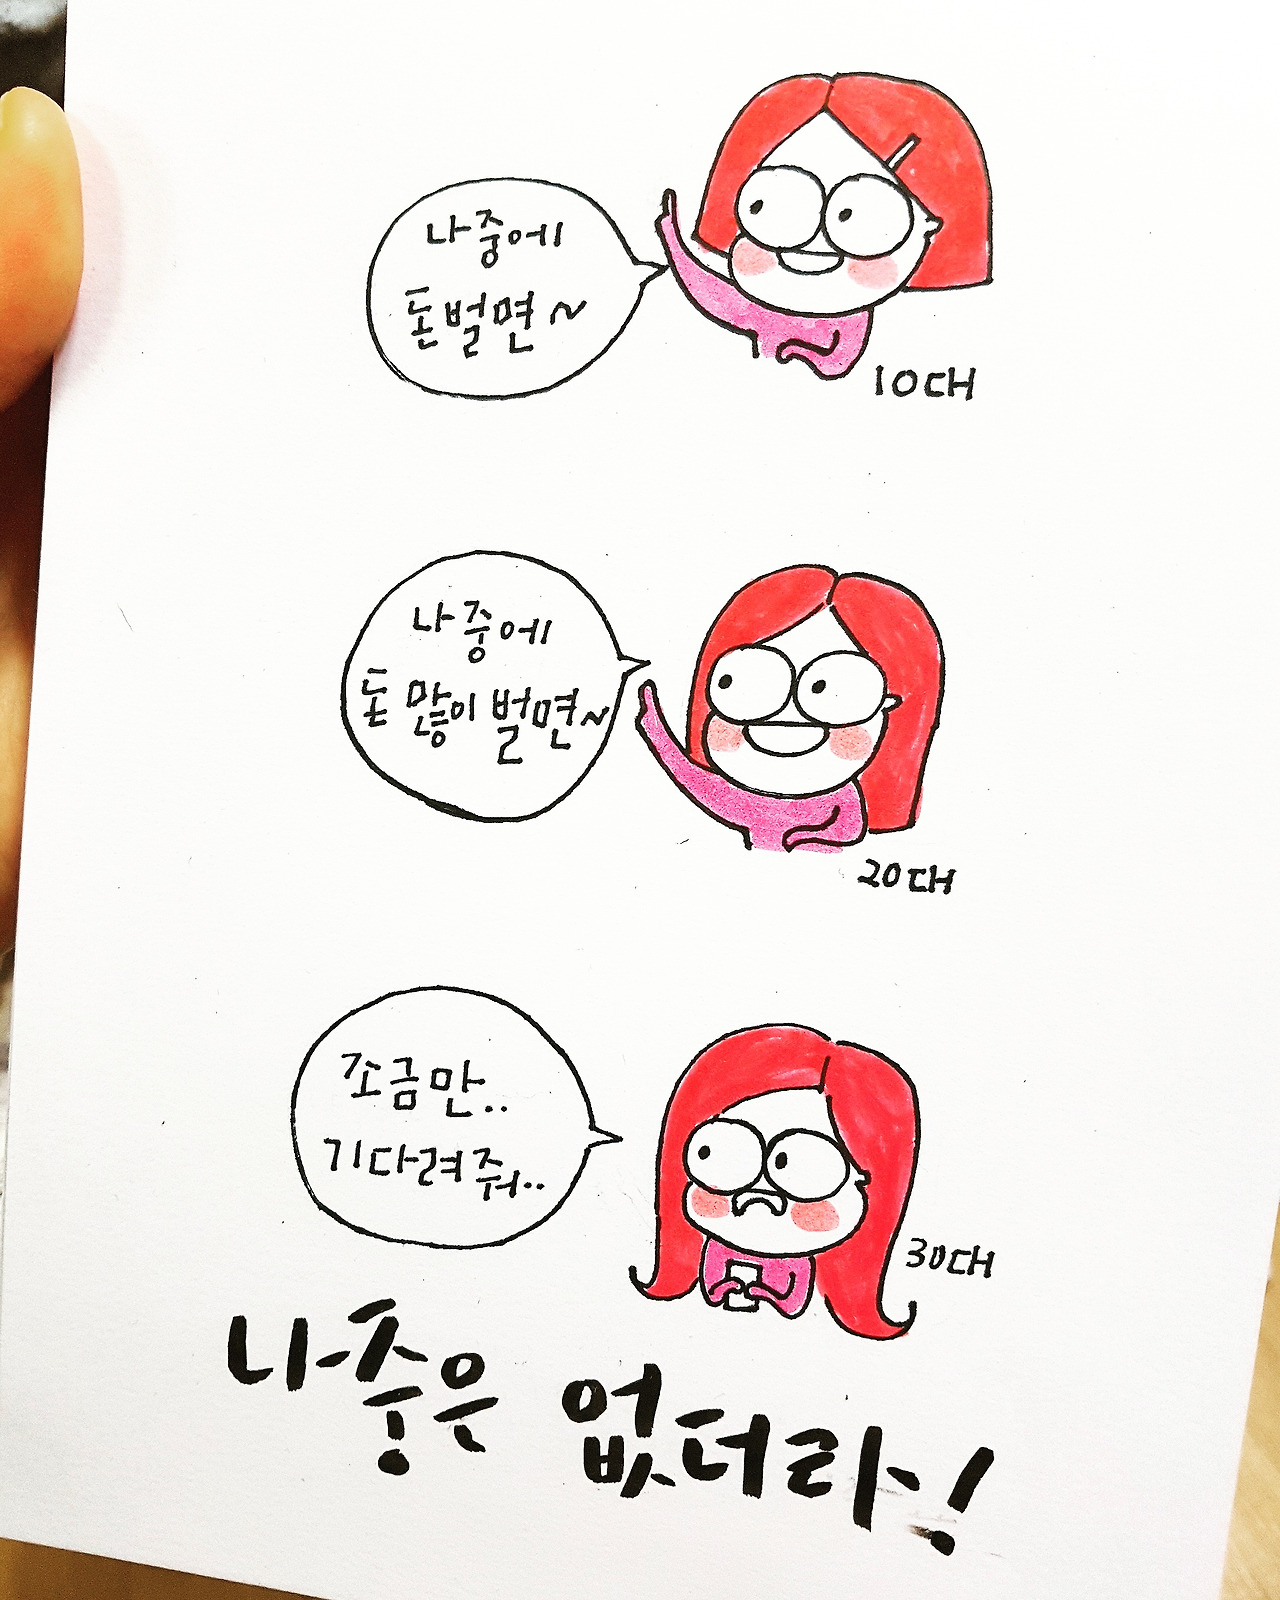 나중에
돈벌면~
10대
나중에
돈 많이 벌면~
20대
조금만..
기다려줘..
30대
나중은 없더라!